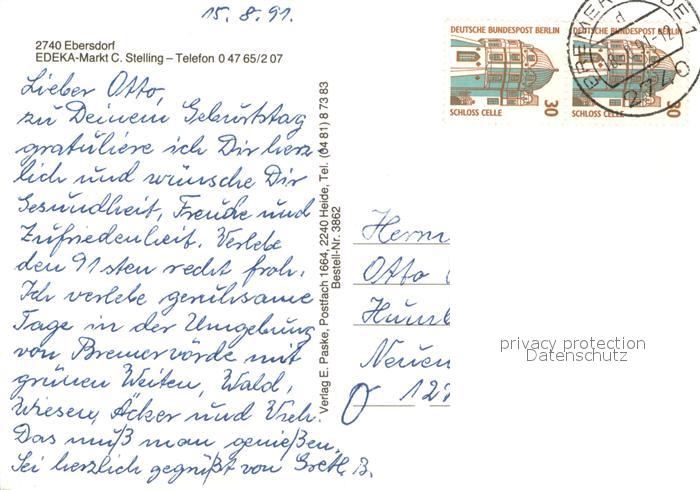 15. 8. 91.
2740 Ebersdorf
EDEKA-Markt C. Stelling – Telefon 0 47 65/2 07
Lieber Otto,
zu Deinem Geburtstag
gratuliere ich Dir herz
lich und wünsche Dir
Gesundheit, Freude und
Zufriedenheit. Verlebe
den 91sten recht froh.
Ich verlebe geruhsame
Tage in der Umgebung
von Bremervörde mit
grünen Weiten, Wald,
Wiesen, Äcker und Vieh.
Das muß man genießen.
Sei herzlich gegrüßt von Gretl. B.
Verlag E. Paske, Postfach 1664, 2240 Heide, Tel. (04 81) 8 73 83
Bestell-Nr. 3862
DEUTSCHE BUNDESPOST BERLIN
SCHLOSS CELLE
30
DEUTSCHE BUNDESPOST BERLIN
SCHLOSS CELLE
30
2740
Herrn
Otto
Neuen
O
privacy protection
Datenschutz